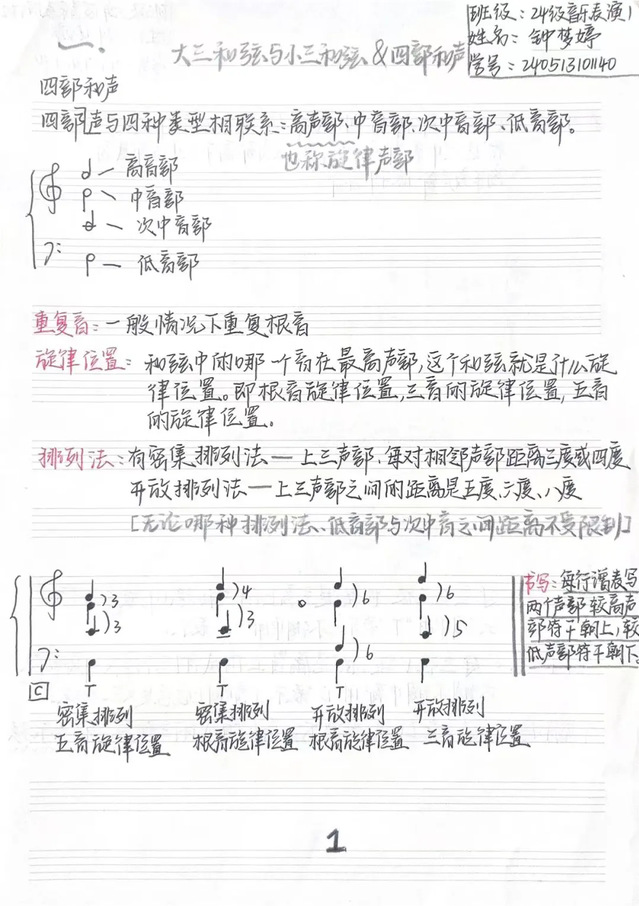 班级：24级音乐表演1
姓名：钟梦婷
学号：240513101140
一.
大三和弦与小三和弦&四部和声
四部和声
四部声与四种类型相联系：高声部、中音部、次中音部、低音部。
也称旋律声部
高音部
中音部
次中音部
低音部
重复音：一般情况下重复根音
旋律位置：和弦中的哪一个音在最高声部，这个和弦就是什么旋
律位置。即根音旋律位置，三音的旋律位置，五音
的旋律位置。
排列法：有密集排列法—上三声部、每对相邻声部距离三度或四度
开放排列法—上三声部之间的距离是五度、六度、八度
[无论哪种排列法、低音部与次中音之间距离不受限制]
3 4 6 6
3 3 6 5
书写：每行谱表写
两个声部较高声
部符干朝上，较
低声部符干朝下
C T T T T
密集排列 密集排列 开放排列 开放排列
五音旋律位置 根音旋律位置 根音旋律位置 三音旋律位置
1